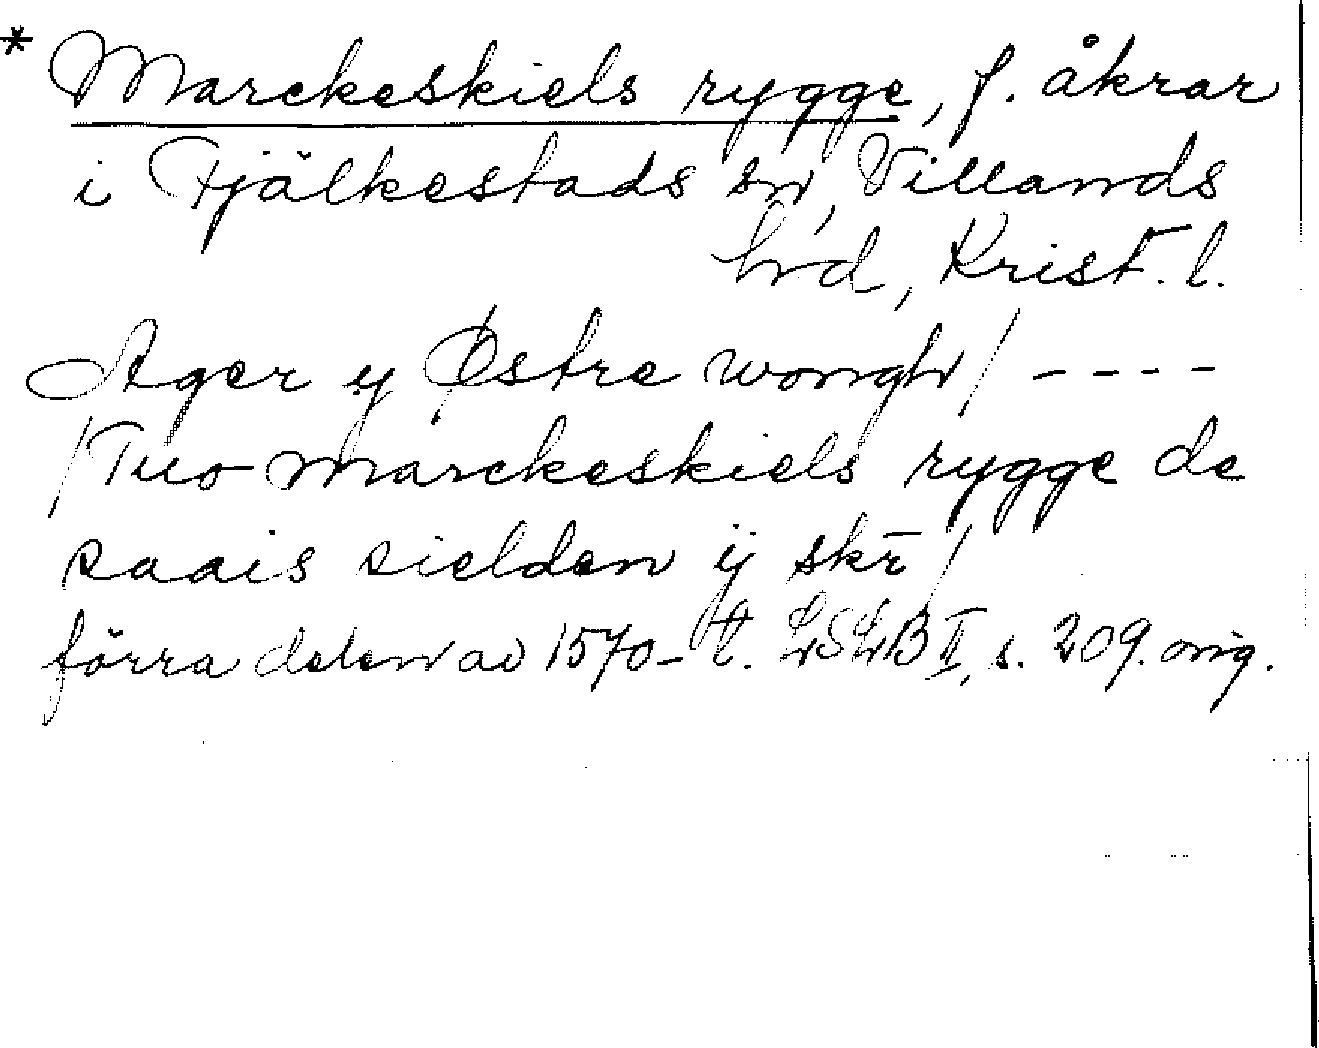 * Marckeskiels rygge, f. åkrar
i Fjälkestads sn, Villands
hrd, Krist. l.
Ager y Østre wongh/ ----
/Tuo marckeskiels rygge de
saais sielden ij skr̄/
förra delen av 1570-t. LSLB II, s. 209. orig.